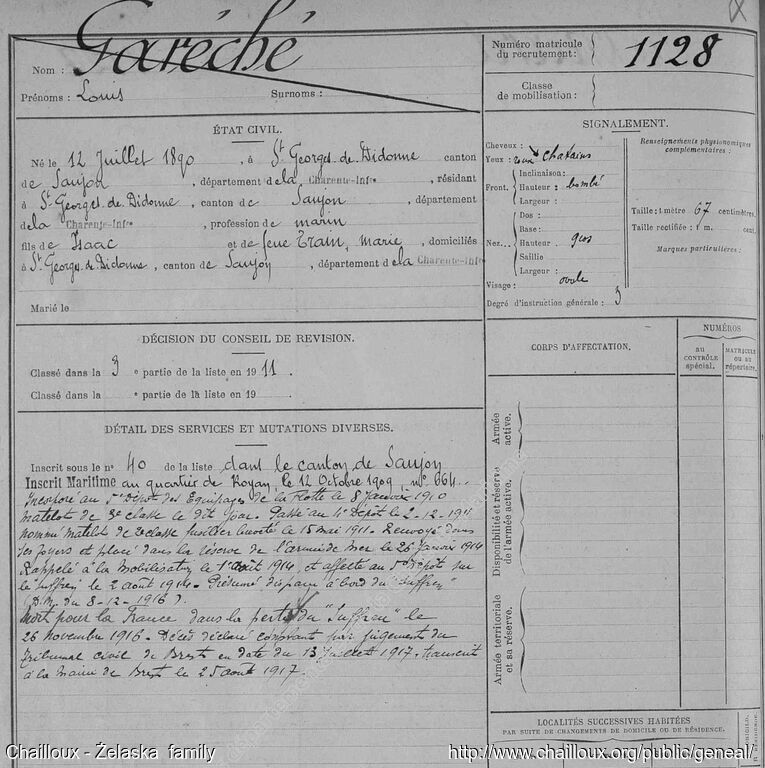 Garéché
Nom :
Prénoms : Louis Surnoms :
Numéro matricule du recrutement : 1128
Classe de mobilisation :
ÉTAT CIVIL.
Né le 12 Juillet 1890, à St Georges-de-Didonne canton
de Saujon, département de la Charente-Infre, résidant
à St Georges-de-Didonne, canton de Saujon, département
de la Charente-Infre, profession de marin
fils de Isaac et de feue Train, marie, domiciliés
à St Georges-de-Didonne, canton de Saujon, département de la Charente-Infre
Marié le
SIGNALEMENT.
Cheveux :
Yeux : chatains
Front. Inclinaison :
Hauteur : bombé
Largeur :
Nez... Dos :
Base :
Hauteur gros
Saillie
Largeur :
Visage : ovale
Degré d'instruction générale : 3
Renseignements physionomiques complémentaires :
Taille : 1 mètre 67 centimètres.
Taille rectifiée : 1 m. cent.
Marques particulières :
DÉCISION DU CONSEIL DE REVISION.
Classé dans la 3 e partie de la liste en 1911.
Classé dans la e partie de la liste en 19
CORPS D'AFFECTATION.
NUMÉROS
AU CONTRÔLE spécial.
MATRICULE ou au répertoire.
Armée active.
Disponibilité et réserve de l'armée active.
Armée territoriale et sa réserve.
DÉTAIL DES SERVICES ET MUTATIONS DIVERSES.
Inscrit sous le n° 40 de la liste dans le canton de Saujon
Inscrit Maritime au quartier de Royan, le 12 Octobre 1909, n° 664.
Incorporé au 5e Dépôt des Equipages de la Flotte le 8 Janvier 1910
matelot de 3e classe le dit jour. Passé au 4e Dépôt le 2-12-1911
nommé matelot de 2e classe fusilier breveté le 15 mai 1911. Renvoyé dans
ses foyers et placé dans la réserve de l'armée de Mer le 26 Janvier 1914
Rappelé à la mobilisation le 1er août 1914, et affecté au Dépôt sur
le Suffren le 2 août 1914. Présumé disparu à bord du "Suffren"
(D.M. du 8-12-1916).
Mort pour la France dans la perte du "Suffren" le
26 novembre 1916. Décès déclaré constant par jugement du
tribunal civil de Brest en date du 13 Juillet 1917, transcrit
à la Mairie de Brest le 25 août 1917.
LOCALITÉS SUCCESSIVES HABITÉES
PAR SUITE DE CHANGEMENTS DE DOMICILE OU DE RÉSIDENCE.
Chailloux - Żelaska family
http://www.chailloux.org/public/geneal/